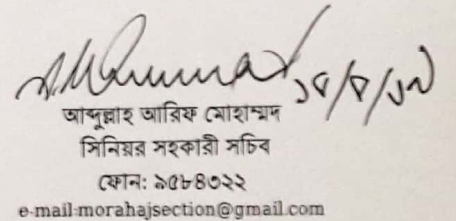 আব্দুল্লাহ আরিফ মোহাম্মদ
সিনিয়র সহকারী সচিব
ফোন: ৯৫৮৪৩২২
e-mail:morahajsection@gmail.com